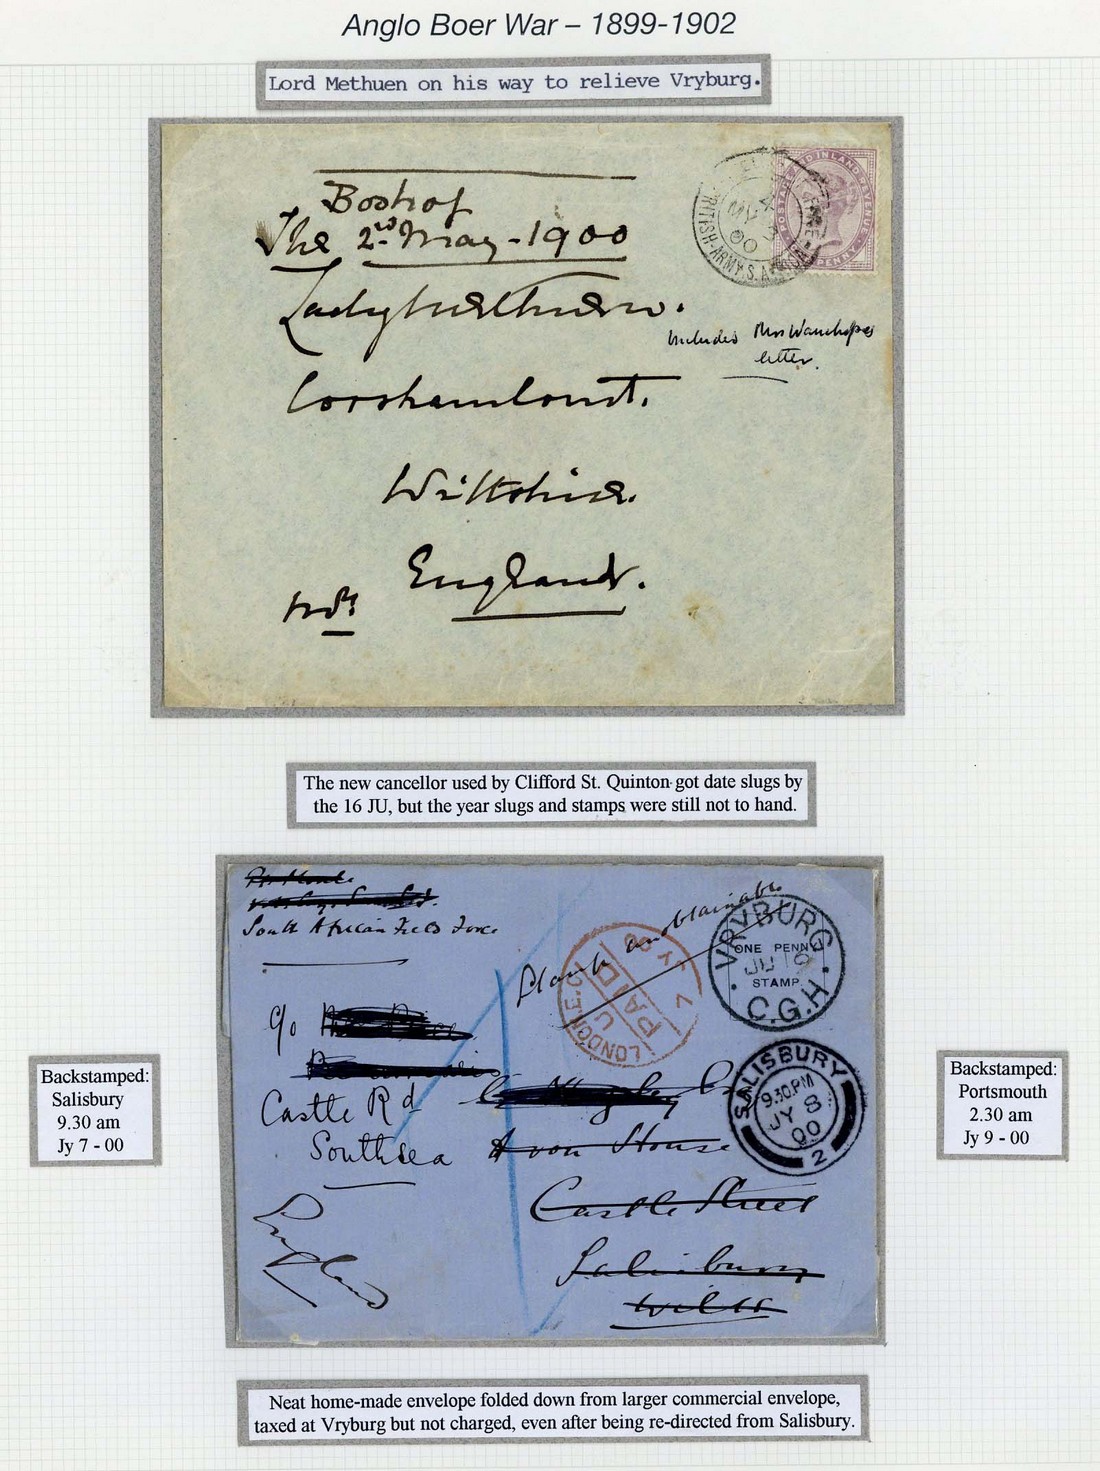 Anglo Boer War – 1899-1902
Lord Methuen on his way to relieve Vryburg.
Boshof
The 2nd May - 1900
Lady Methuen.
Corsham Court.
Wiltshire.
England.
includes Mrs Wauchope's
letter.
MY 4
00
BRITISH-ARMY S. AFRICA
POSTAGE AND INLAND REVENUE
PENNY
The new cancellor used by Clifford St. Quinton got date slugs by
the 16 JU, but the year slugs and stamps were still not to hand.
South African Field Force
Stamp unobtainable
c/o
Castle Rd
Southsea
England
Avon House
Castle Street
Salisbury
Wilts
LONDON.E.C.
PAID
JY 00
VRYBURG
ONE PENNY
JU 16
STAMP.
C.G.H.
SALISBURY
9.30.PM
JY 8
00
2
Backstamped:
Salisbury
9.30 am
Jy 7 - 00
Backstamped:
Portsmouth
2.30 am
Jy 9 - 00
Neat home-made envelope folded down from larger commercial envelope,
taxed at Vryburg but not charged, even after being re-directed from Salisbury.